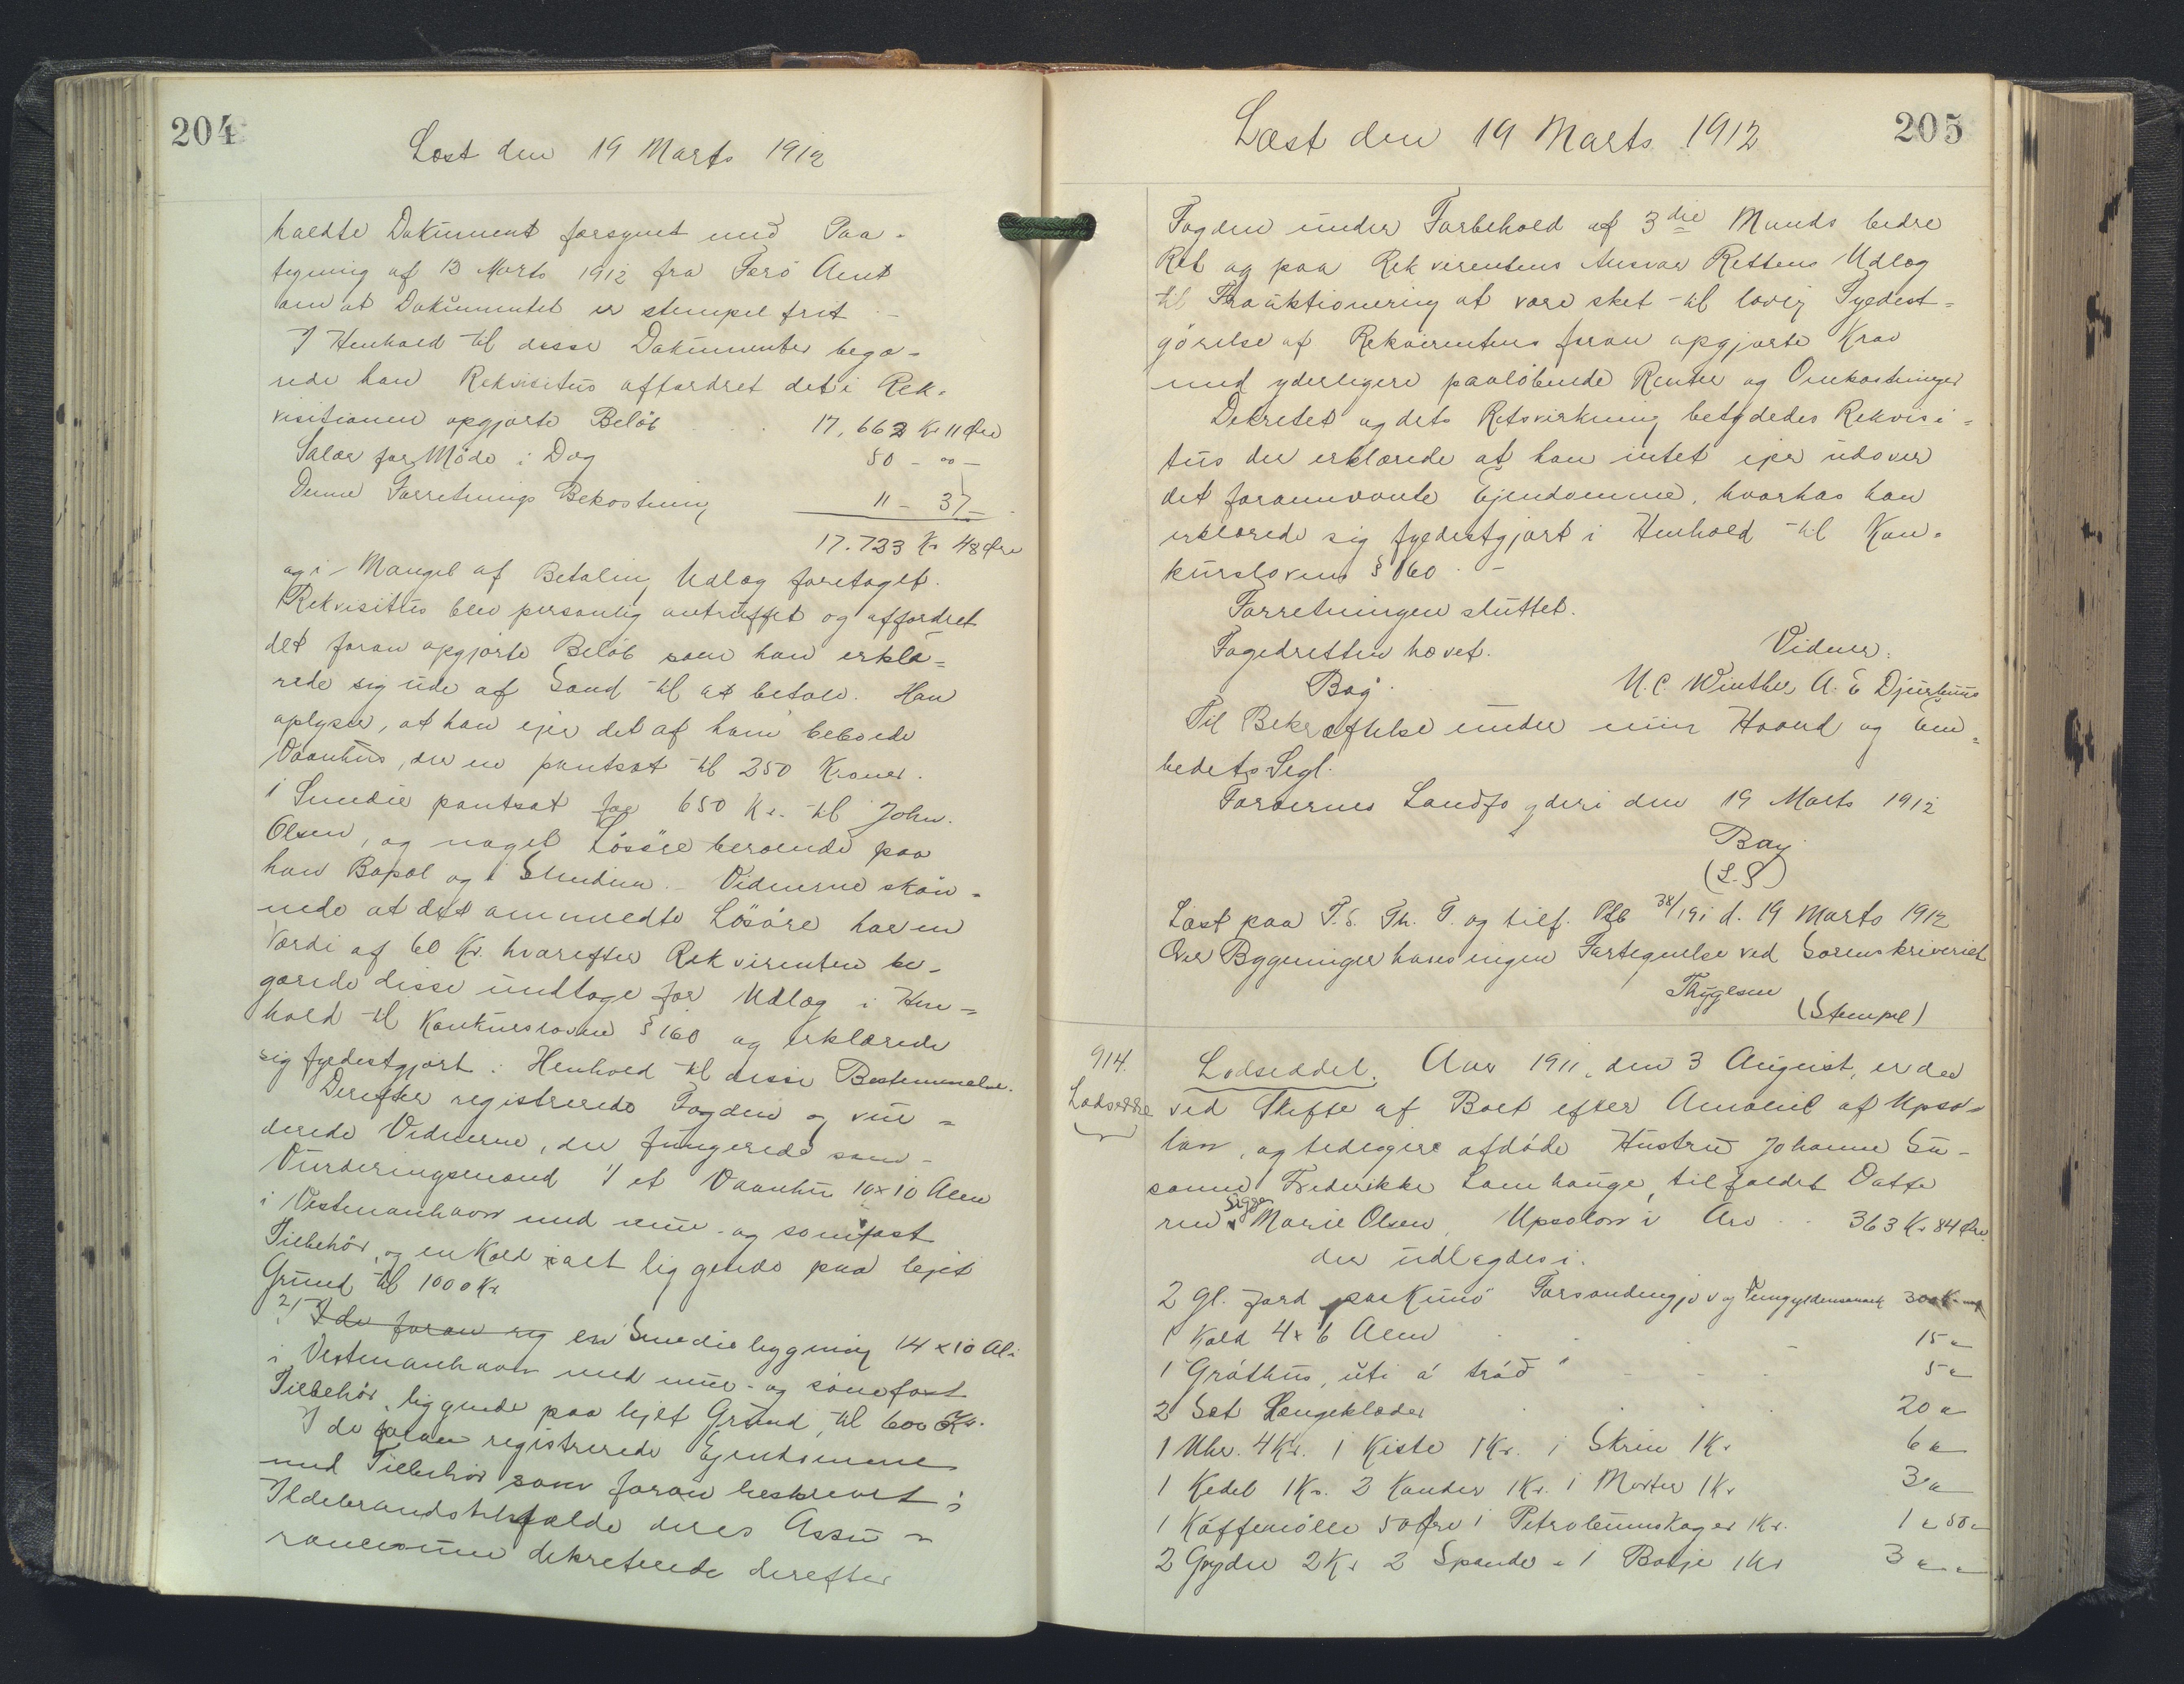 204
Læst den 19 Marts 1912
holdte Dokument forsynet med Paa-
tegning af 13 Marts 1912 fra Færö Amt
om at Dokumentet er stempel frit. -
I Henhold til disse Dokumenter begæ-
rede han Rekvisitus affordret det i Rek-
visitionen opgjorte Belöb 17,662 Kr 11 Øre
Salær for Möde i Dag 50 - " -
Denne Forretnings Bekostning 11 - 37 -
17.723 Kr 48 Øre
og i Mangel af Betaling Udlæg foretaget.
Rekvisitus blev personlig antruffet og affordret
det foran opgjorte Belöb som han erklæ-
rede sig ude af Stand til at betale. Han
oplyser, at han ejer det af ham beboede
Vaanhus, der er pantsat til 250 Kroner.
1 Smedie pantsat for 650 Kr. til John.
Olsen, og noget Lösöre beroende paa
hans Bopæl og i Smedien. - Vidnerne skön-
nede at det anmeldte Lösöre har en
Værdi af 60 Kr. hvorefter Rekvirenten be-
gærede disse undtage for Udlæg i Hen-
hold til Konkurslovens § 160 og erklærede
sig fyldestgjort i Henhold til disse Bestemmelse.
Derefter registrerede Fogden og vur-
derede Vidnerne, der fungerede som
Vurderingsmænd 1/ et Vaanhus 10 x 10 Alen
i Vestmanhavn med mur- og sömfast
Tilbehör, og en Kold i alt liggende paa lejet
Grund til 1000 Kr
2/ I de foran reg en Smediebygning 14 x 10 Al.
i Vestmanhavn med mur- og sömfast
Tilbehör, liggende paa lejet Grund, til 600 Kr.
I de foran registrerede Ejendomme
med Tilbehör som foran beskrevet i
Ildebrandstilfælde deres Assu-
rancesum dekreterede derefter
205
Læst den 19 Marts 1912
Fogden under Forbehold af 3die Mands bedre
Ret og paa Rekvirentens Ansvar Rettens Udlæg
til Frauktionering at være sket til lovlig Fyldest-
görelse af Rekvirentens foran opgjorte Krav
med yderligere paalöbende Renter og Omkostninger
Dekretet og dets Retsvirkning betydedes Rekvisi-
tus der erklærede at han intet ejer udover
det forannævnte Ejendomme, hvorhos han
erklærede sig fyldestgjort i Henhold til Kon-
kurslovens § 160. -
Forretningen sluttet.
Fogedretten hævet. Vidner:
Bay. M. C. Winther A. E Djurhuus
Til Bekræftelse under min Haand og Em-
bedets Segl.
Færöernes Landfogderi den 19 Marts 1912
Bay
(L. S)
Læst paa F. S. Th. T. og tilf. Ptb 38/191 d. 19 Marts 1912
Over Bygninger haves ingen Fortegnelse ved Sorenskriveriet
Thygesen
(Stempel)
914.
Lodseddel
Lodseddel. Aar 1911, den 3 August, er der
ved Skifte af Boet efter Amaeil af Upsa-
lan, og tidligere afdöde Hustru Johanne Su-
sanne Frederikke Lamhauge, tilfaldet Datte
ren Sigga Marie Olsen, Upsalon i Arv .. 363 Kr 84 Øre
der udlægdes i.
2 gl. Jord paa Kunö
1 Kold 4 x 6 Alen 15 "
1 Gróthus, úti á tröd " 5 "
2 Sæt Sengeklæder 20 "
1 Uhr. 4 Kr. 1 Kiste 1 Kr. 1 Skrin 1 Kr 6 "
1 Kedel 1 Kr. 2 Kander 1 Kr. 1 Morter 1 Kr 3 "
1 Kaffemölle 50 Øre 1 Petroleumskoger 1 Kr. 1 " 50 "
2 Gryder 2 Kr 2 Spande " 1 Balje 1 Kr 3 " "